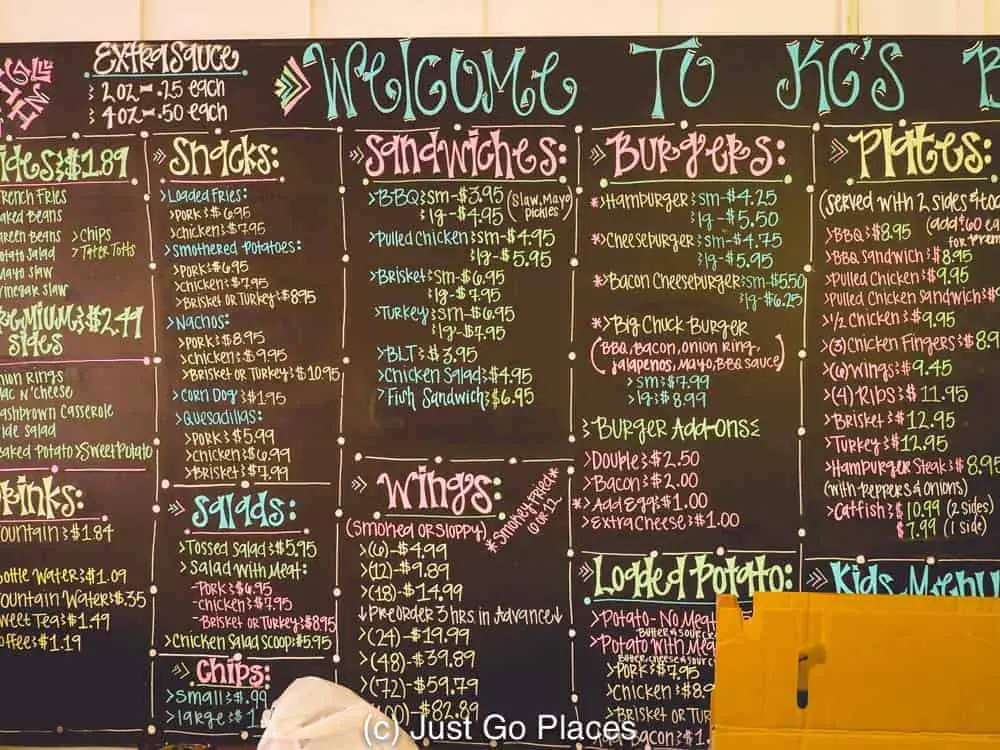 Extra Sauce
2oz - .25 each
4oz - .50 each
Welcome To KG's B
ides $1.89
rench Fries
aked Beans
reen Beans
otato Salad
Mayo Slaw
inegar Slaw
>Chips
>Tater Totts
remium $2.49
Sides
nion Rings
ac n' Cheese
ashbrown Casserole
ide Salad
aked Potato >Sweet Potato
rinks:
ountain $1.84
ottle Water $1.09
ountain Water $.35
weet Tea $1.49
offee $1.19
Snacks:
>Loaded Fries:
>Pork $6.95
>Chicken $7.95
>Smothered Potatoes:
>Pork $6.95
>Chicken $7.95
>Brisket or Turkey $8.95
>Nachos:
>Pork $8.95
>Chicken $9.95
>Brisket or Turkey $10.95
>Corn Dog $1.95
>Quesadillas:
>Pork $5.99
>Chicken $6.99
>Brisket $7.99
Salads:
>Tossed Salad $5.95
>Salad with Meat:
-Pork $6.95
-Chicken $7.95
-Brisket or Turkey $8.95
>Chicken Salad Scoop $5.95
Chips:
>Small $.99
>large $1
Sandwiches:
>BBQ sm-$3.95 (Slaw, Mayo
lg-$4.95 pickles)
>Pulled Chicken sm-$4.95
lg-$5.95
>Brisket sm-$6.95
lg-$7.95
>Turkey sm-$6.95
lg-$7.95
>BLT $3.95
>Chicken Salad $4.95
>Fish Sandwich $6.95
Wings:
(Smoked or Sloppy)
*Smokey Trick*
6 or 12
>(6)-$4.99
>(12)-$9.89
>(18)-$14.99
↓Preorder 3hrs in Advance↓
>(24)-$19.99
>(48)-$39.89
>(72)-$59.79
00)-$82.89
Burgers:
*>Hamburger sm-$4.25
lg-$5.50
*>Cheeseburger sm-$4.75
lg-$5.95
*>Bacon Cheeseburger sm-$5.50
lg-$6.25
*>Big Chuck Burger
(BBQ, Bacon, Onion Ring,
Jalapenos, Mayo, BBQ Sauce)
>sm $7.99
>lg $8.99
Burger Add-ons
>Double $2.50
>Bacon $2.00
*>Add Egg $1.00
>Extra Cheese $1.00
Loaded Potato:
>Potato - No Meat
Butter & Sour C
>Potato with Mea
Butter, Cheese & Sour C
>Pork $7.95
>Chicken $8.9
>Brisket or Tur
Add Bacon $1.
Plates:
(Served with 2 sides & toa
(add $.60 ea
for Prem
>BBQ $8.95
>BBQ Sandwich $8.95
>Pulled Chicken $9.95
>Pulled Chicken Sandwich $
>1/2 Chicken $9.95
>(3) Chicken Fingers $8.9
>(6) Wings $9.45
>(4) Ribs $11.95
>Brisket $12.95
>Turkey $12.95
>Hamburger Steak $8.95
(with peppers & onions)
>Catfish $10.99 (2 sides)
$7.99 (1 side)
Kids Menu
(c) Just Go Places